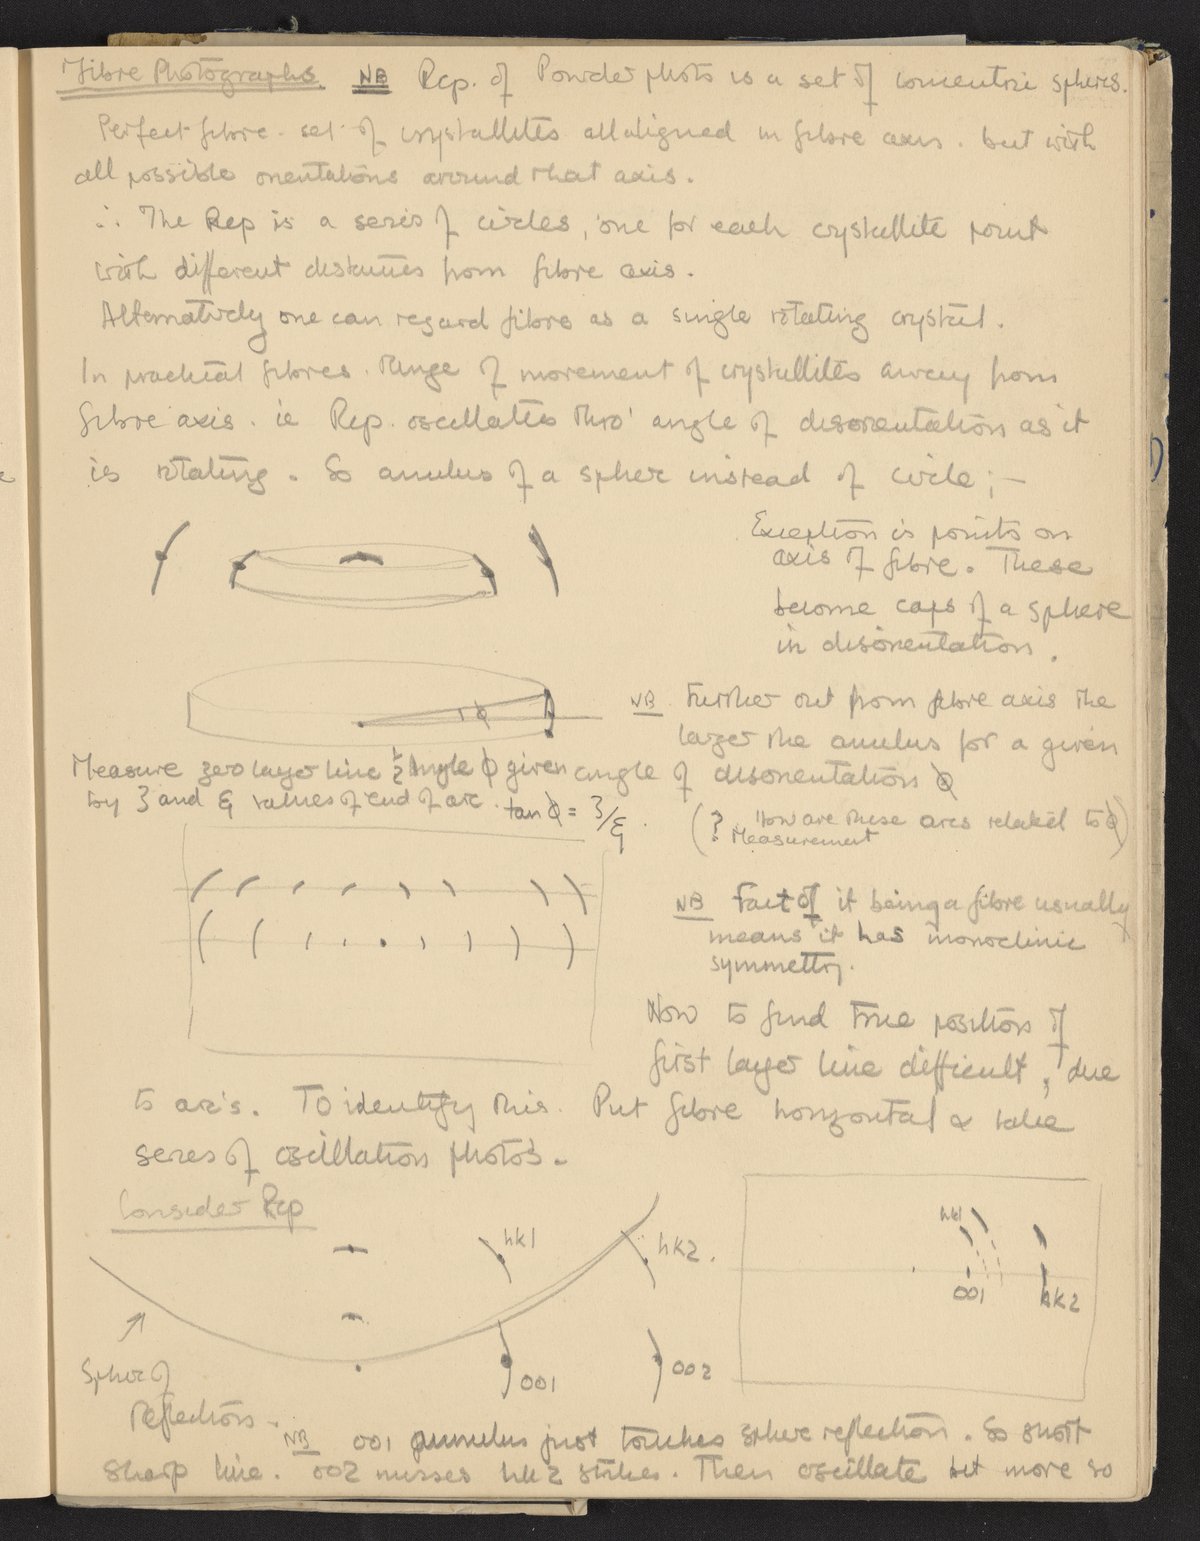 Fibre Photographs. NB Rep. of Powder photo is a set of concentric spheres.
Perfect fibre - set of crystallites all aligned in fibre axis. but with
all possible orientations around that axis.
∴ The Rep is a series of circles, one for each crystallite point
with different distances from fibre axis.
Alternatively one can regard fibre as a single rotating crystal.
In practical fibres. Range of movement of crystallites away from
fibre axis. ie Rep. oscillates thro' angle of disorientation as it
is rotating. So anulus of a spher instead of circle; —
Exception is points on
axis of fibre. These
become caps of a sphere
in disorientation.
φ
NB Further out from fibre axis the
larger the anulus for a given
angle of disorientation φ
Measure zero layer line ½ angle φ given
by ζ and ξ values of end of arc. tan φ = ζ/ξ.
(? How are these arcs related to φ)
Measurement
NB Fact of it being a fibre usually
means it has monoclinic
symmetry.
Now to find true position of
first layer line difficult, due
to arc's. To identify this. Put fibre horizontal & take
series of oscillation photo's.
Consider Rep
hk1
hk2.
001
002
Spher of
Reflections.
hk1
001
hk2
NB 001 annulus just touches spher reflection. So short
sharp line. 002 misses hk2 strikes. Then oscillate bit more so